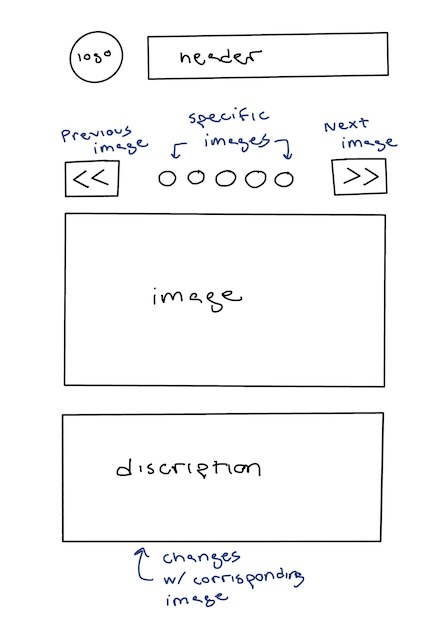 logo
header
specific
images
Previous
image
Next
image
<<
>>
image
discription
changes
w/ corrisponding
image